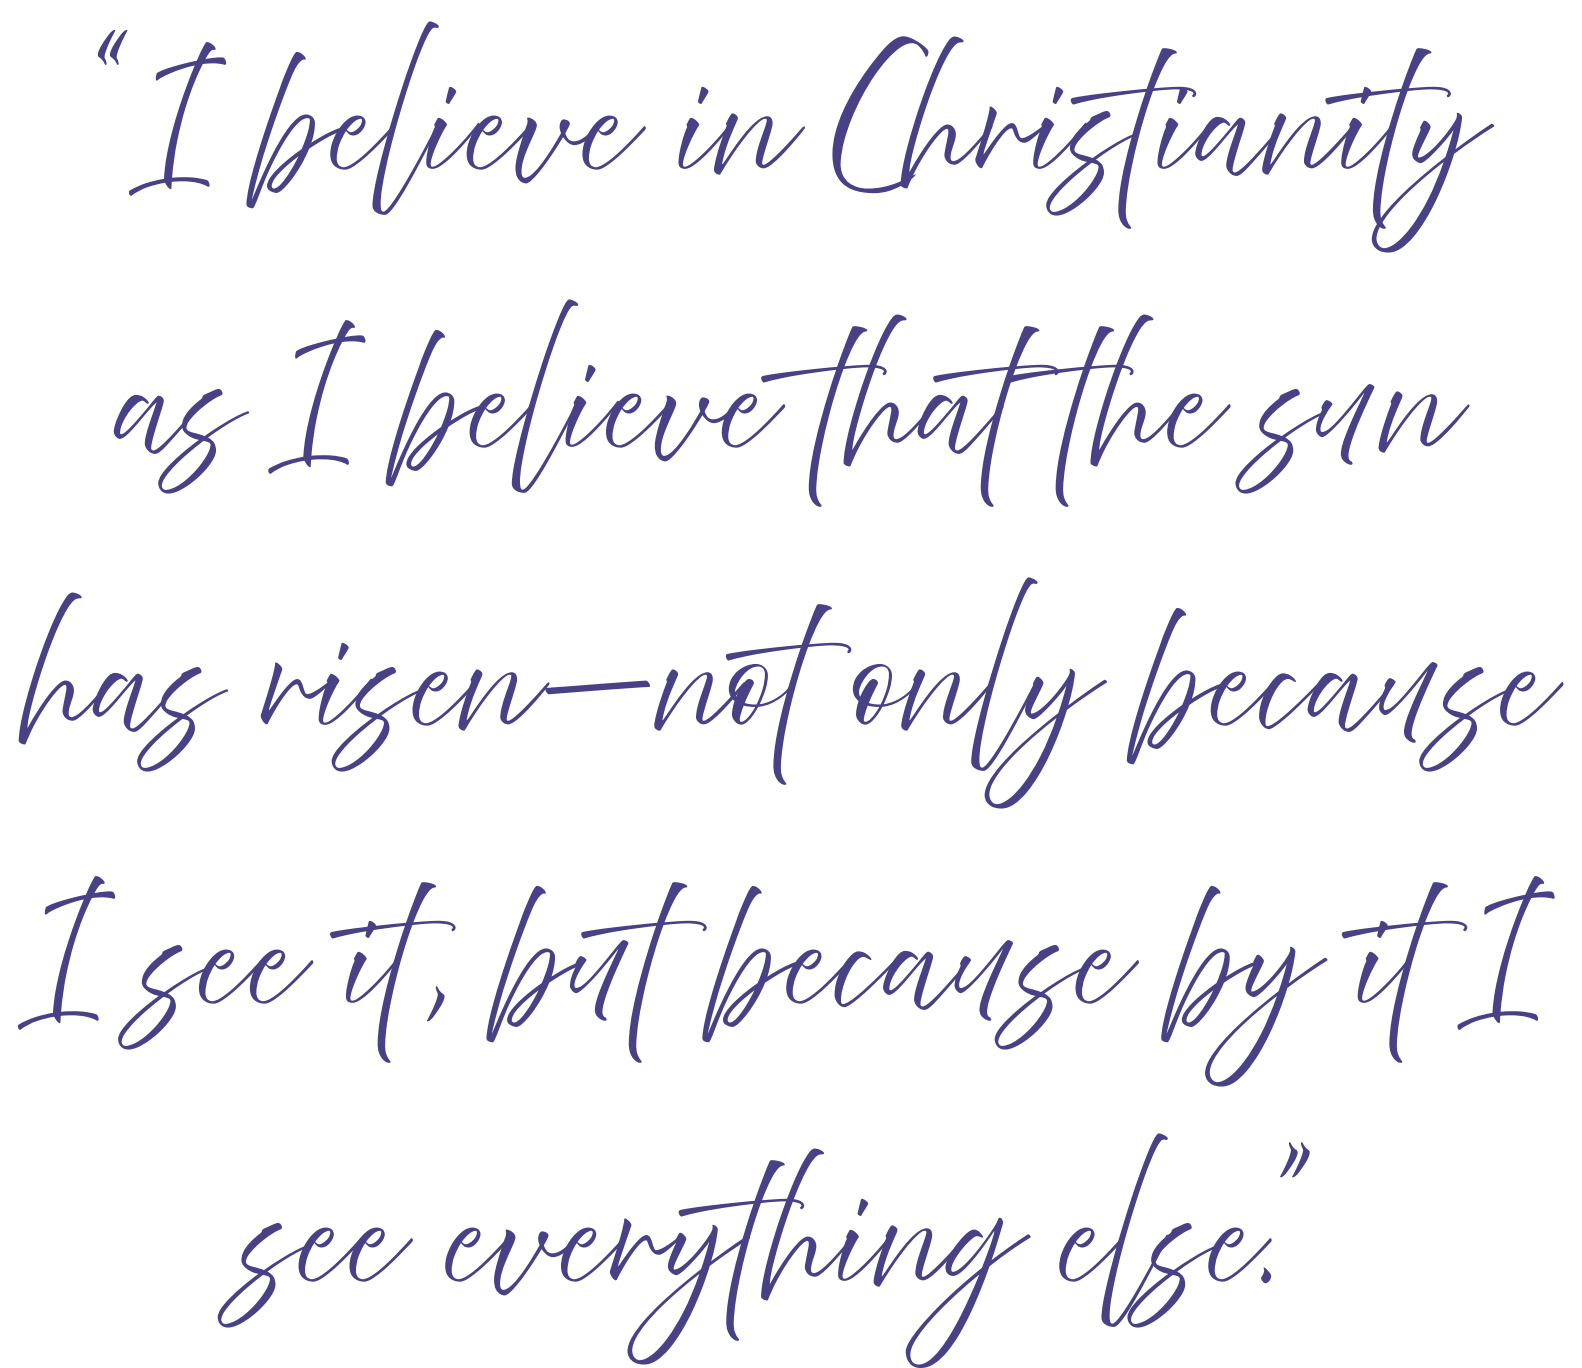 “I believe in Christianity
as I believe that the sun
has risen—not only because
I see it, but because by it I
see everything else.”